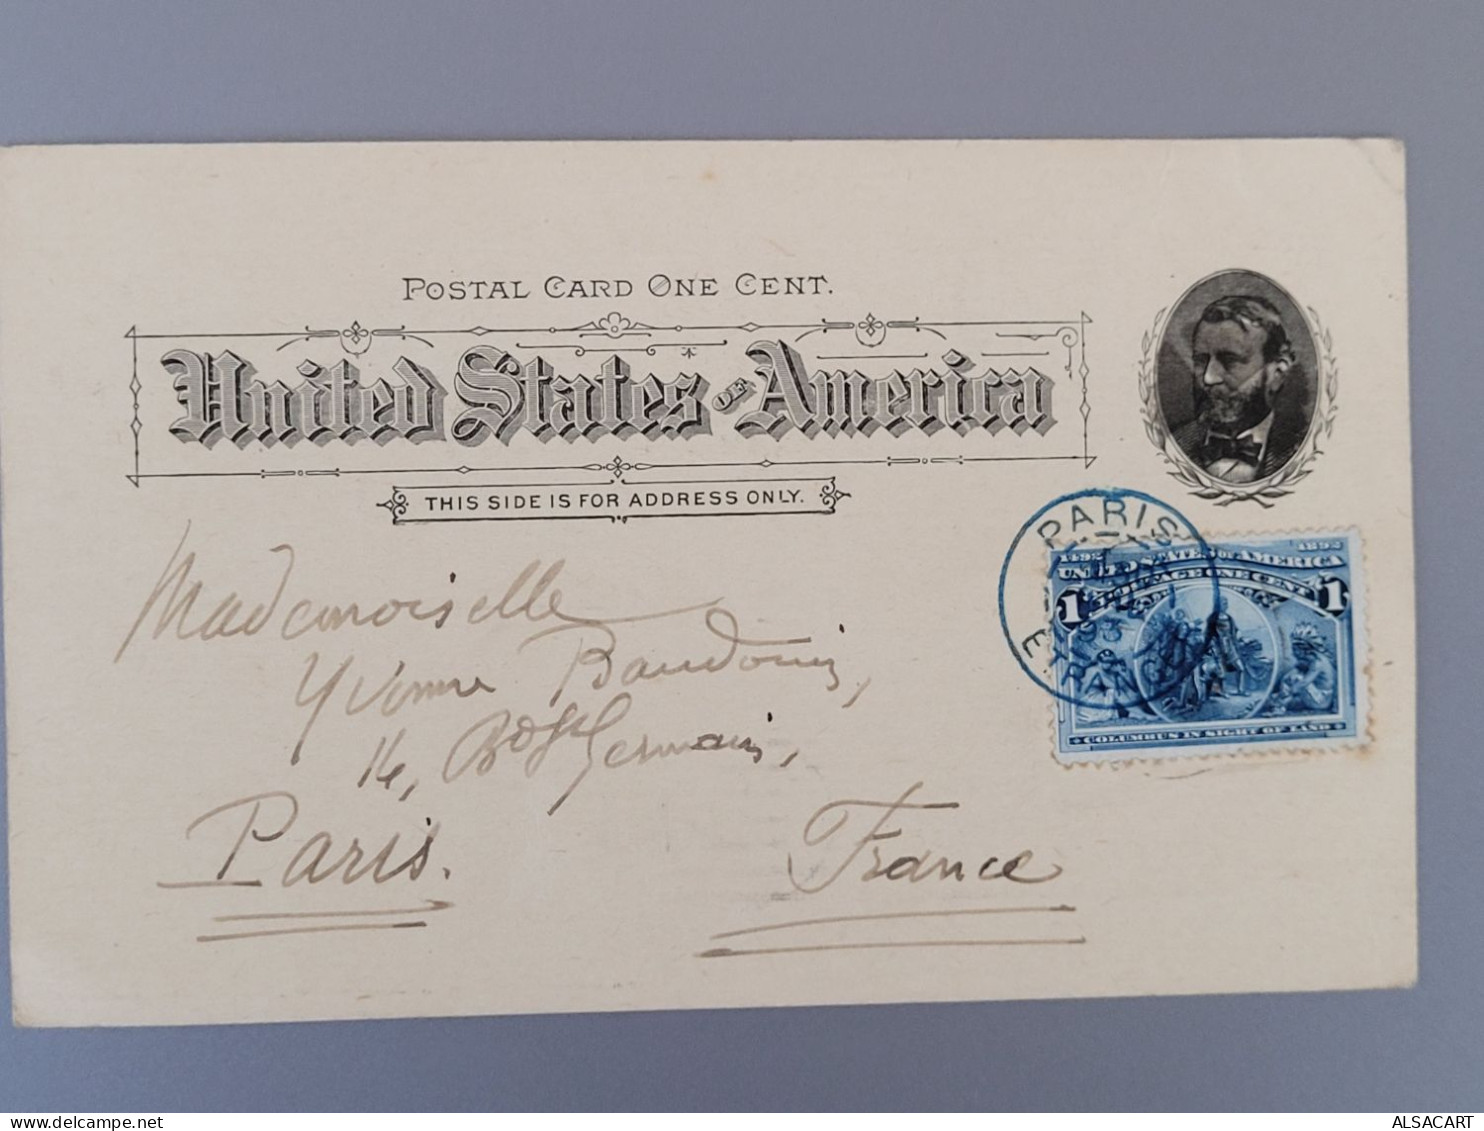 POSTAL CARD ONE CENT.
United States OF America
THIS SIDE IS FOR ADDRESS ONLY.
PARIS
ETRANGER
93
1492 1892
UNITED STATES OF AMERICA
POSTAGE ONE CENT
1 1
COLUMBUS IN SIGHT OF LAND
Mademoiselle
Yvonne Baudouin,
14, Bd St Germain,
Paris. France
delcampe.net
ALSACART